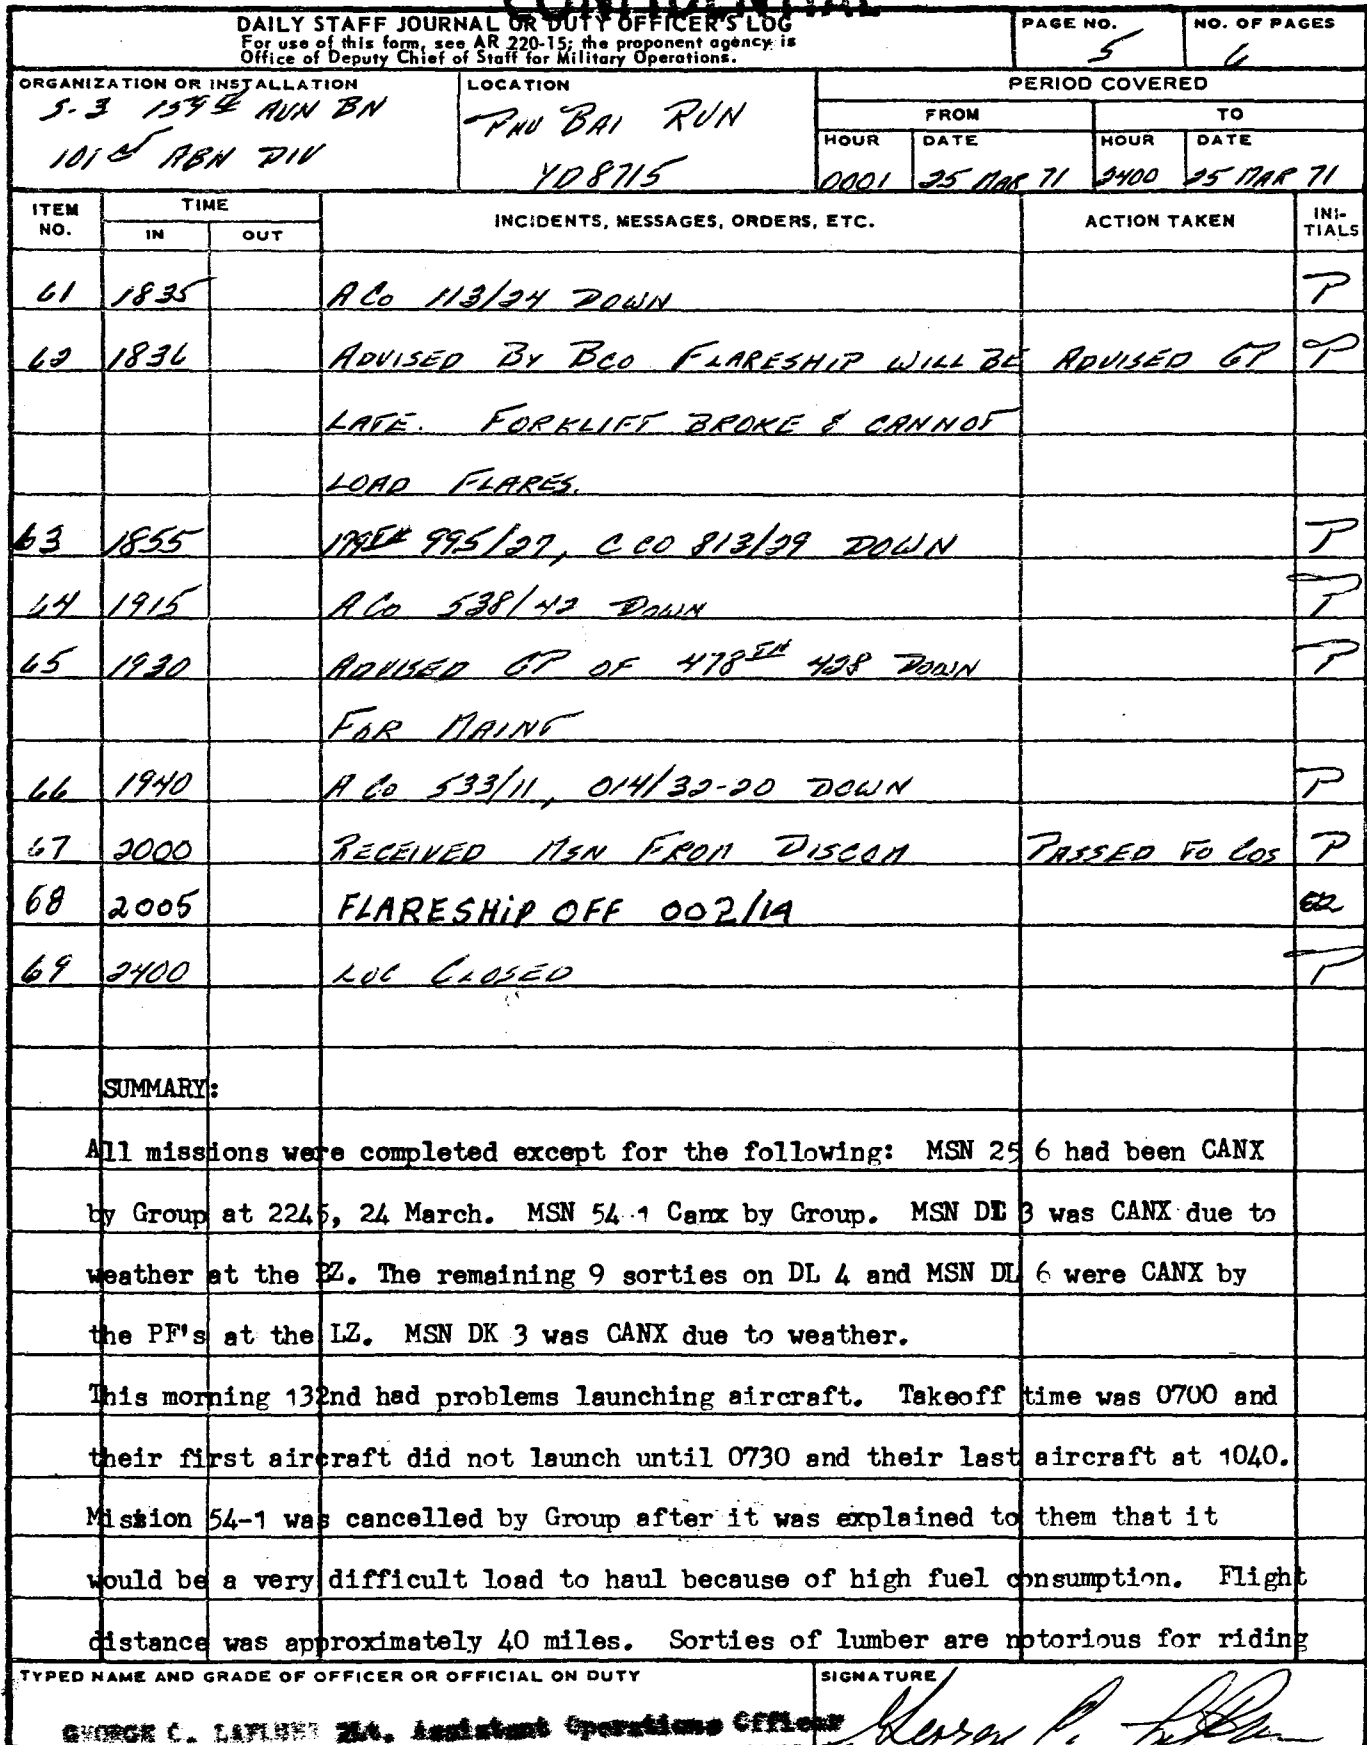 CONFIDENTIAL
DAILY STAFF JOURNAL OR DUTY OFFICER'S LOG
For use of this form, see AR 220-15; the proponent agency is
Office of Deputy Chief of Staff for Military Operations.
PAGE NO.
5
NO. OF PAGES
6
ORGANIZATION OR INSTALLATION
S-3 159th AVN BN
101st ABN DIV
LOCATION
PHU BAI RVN
YD8715
PERIOD COVERED
FROM
TO
HOUR DATE HOUR DATE
0001 25 MAR 71 2400 25 MAR 71
ITEM NO.
TIME
IN OUT
INCIDENTS, MESSAGES, ORDERS, ETC.
ACTION TAKEN
INI-TIALS
61 1835 A Co 113/24 DOWN P
62 1836 ADVISED BY BCO FLARESHIP WILL BE ADVISED GP P
LATE. FORKLIFT BROKE & CANNOT
LOAD FLARES.
63 1855 179th 995/27, C CO 813/29 DOWN P
64 1915 A Co 538/42 DOWN P
65 1930 ADVISED GP OF 478th 428 DOWN P
FOR MAINT
66 1940 A Co 533/11, 014/32-20 DOWN P
67 2000 RECEIVED MSN FROM DISCOM PASSED TO COS P
68 2005 FLARESHIP OFF 002/14
69 2400 LOG CLOSED P
SUMMARY:
All missions were completed except for the following: MSN 25 6 had been CANX
by Group at 2245, 24 March. MSN 54-1 Canx by Group. MSN DE 3 was CANX due to
weather at the PZ. The remaining 9 sorties on DL 4 and MSN DL 6 were CANX by
the PF's at the LZ. MSN DK 3 was CANX due to weather.
This morning 132nd had problems launching aircraft. Takeoff time was 0700 and
their first aircraft did not launch until 0730 and their last aircraft at 1040.
Mission 54-1 was cancelled by Group after it was explained to them that it
would be a very difficult load to haul because of high fuel consumption. Flight
distance was approximately 40 miles. Sorties of lumber are notorious for riding
TYPED NAME AND GRADE OF OFFICER OR OFFICIAL ON DUTY
SIGNATURE
GEORGE C. 2LT. Assistant Operations Officer
George C.